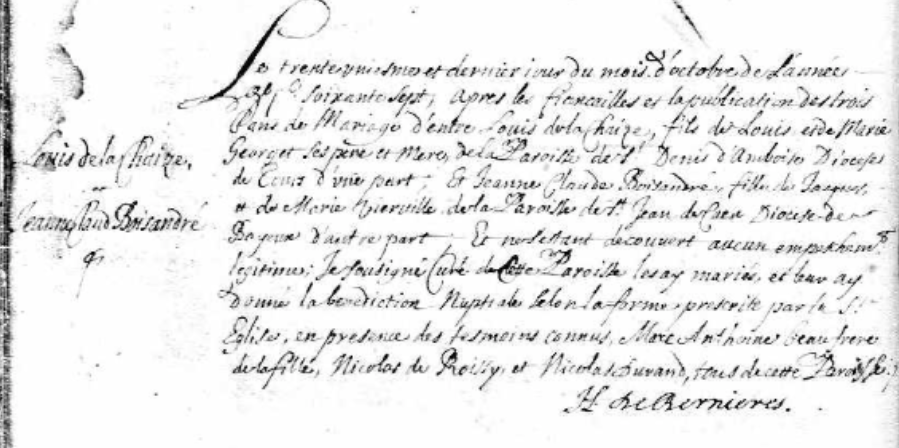 Le trente uniesme et dernier jour du mois d'octobre de L'année
soixante sept, apres les fiancailles et la publication des trois
bans de Mariage d'entre Louis de la Chaize, fils de Louis et de Marie
Georget ses pere et Mere, de la Paroisse de St. Denis d'Amboise Diocese
de Tours d'vne part, Et Jeanne Claude Boisandré, fille de Jacques,
et de Marie Vierville de la Paroisse de St. Jean de Caen Diocese de
Bayeux d'autre part; Et ne s'estant decouvert aucun empeschemt.
legitime; Je sousigné Curé de Cette Paroisse les ay mariés, et leur ay
donné la benediction Nuptiale selon la forme prescrite par la Ste.
Eglise, en presence des tesmoins connus, Marc Anthoine beau frere
de la fille, Nicolas de Roissy, et Nicolas Durand, tous de cette Paroisse.
H. de Bernieres.
Louis de la Chaize,
Jeanne Claud Boisandré